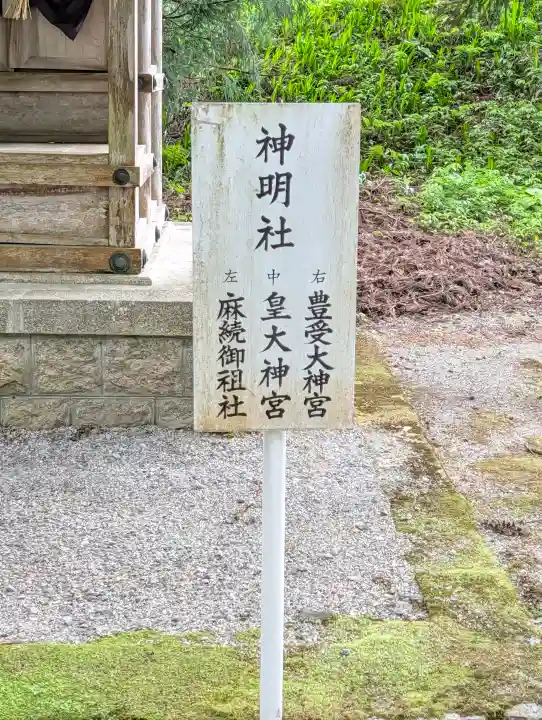 神明社
右 豊受大神宮
中 皇大神宮
左 麻続御祖社